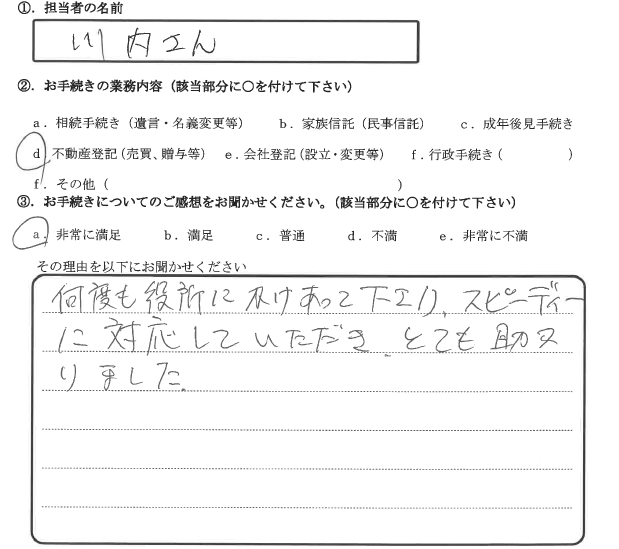 ①．担当者の名前
川内さん
②．お手続きの業務内容（該当部分に○を付けて下さい）
a．相続手続き（遺言・名義変更等）　b．家族信託（民事信託）　c．成年後見手続き
d．不動産登記（売買、贈与等）　e．会社登記（設立・変更等）　f．行政手続き（　　　）
f．その他（　　　）
③．お手続きについてのご感想をお聞かせください。（該当部分に○を付けて下さい）
a．非常に満足　b．満足　c．普通　d．不満　e．非常に不満
その理由を以下にお聞かせください
何度も役所にかけあって下さり、スピーディー
に対応していただき、とても助か
りました。